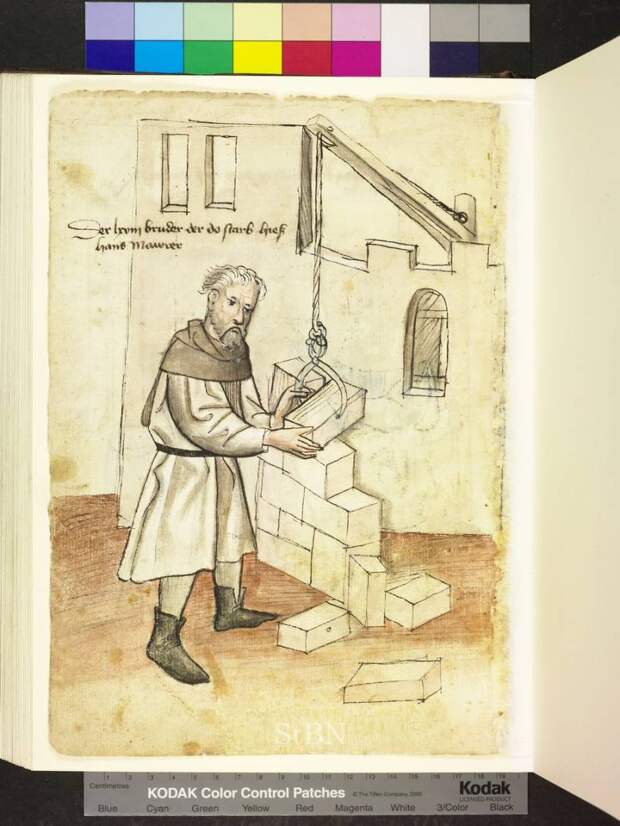 Der lxvij bruder der do starb hieß
hans Mawrer
StBN
Centimetres 1 2 3 4 5 6 7 8 9 10 11 12 13 14 15 16 17 18 19
KODAK Color Control Patches © The Tiffen Company, 2000 Kodak
LICENSED PRODUCT
Blue Cyan Green Yellow Red Magenta White 3/Color Black